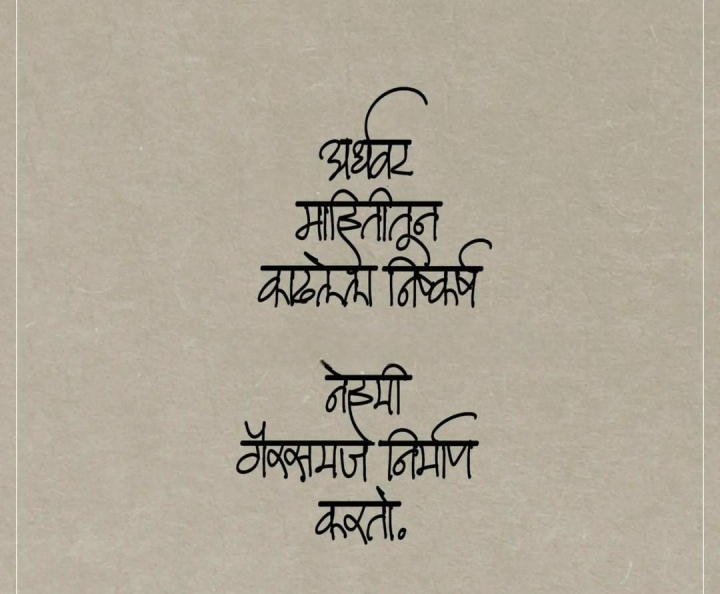 अर्धवट
माहितीतून
काढलेला निष्कर्ष
नेहमी
गैरसमज निर्माण
करतो.